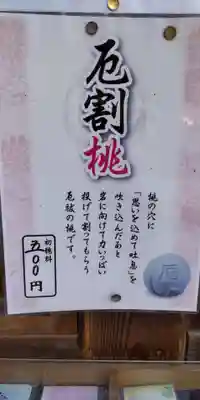 厄割桃
桃の穴に
「思いを込めて吐息」を
吹き込んだあと
岩に向けて力いっぱい
投げて割ってもらう
厄祓の桃です。
厄
初穂料
五〇〇円